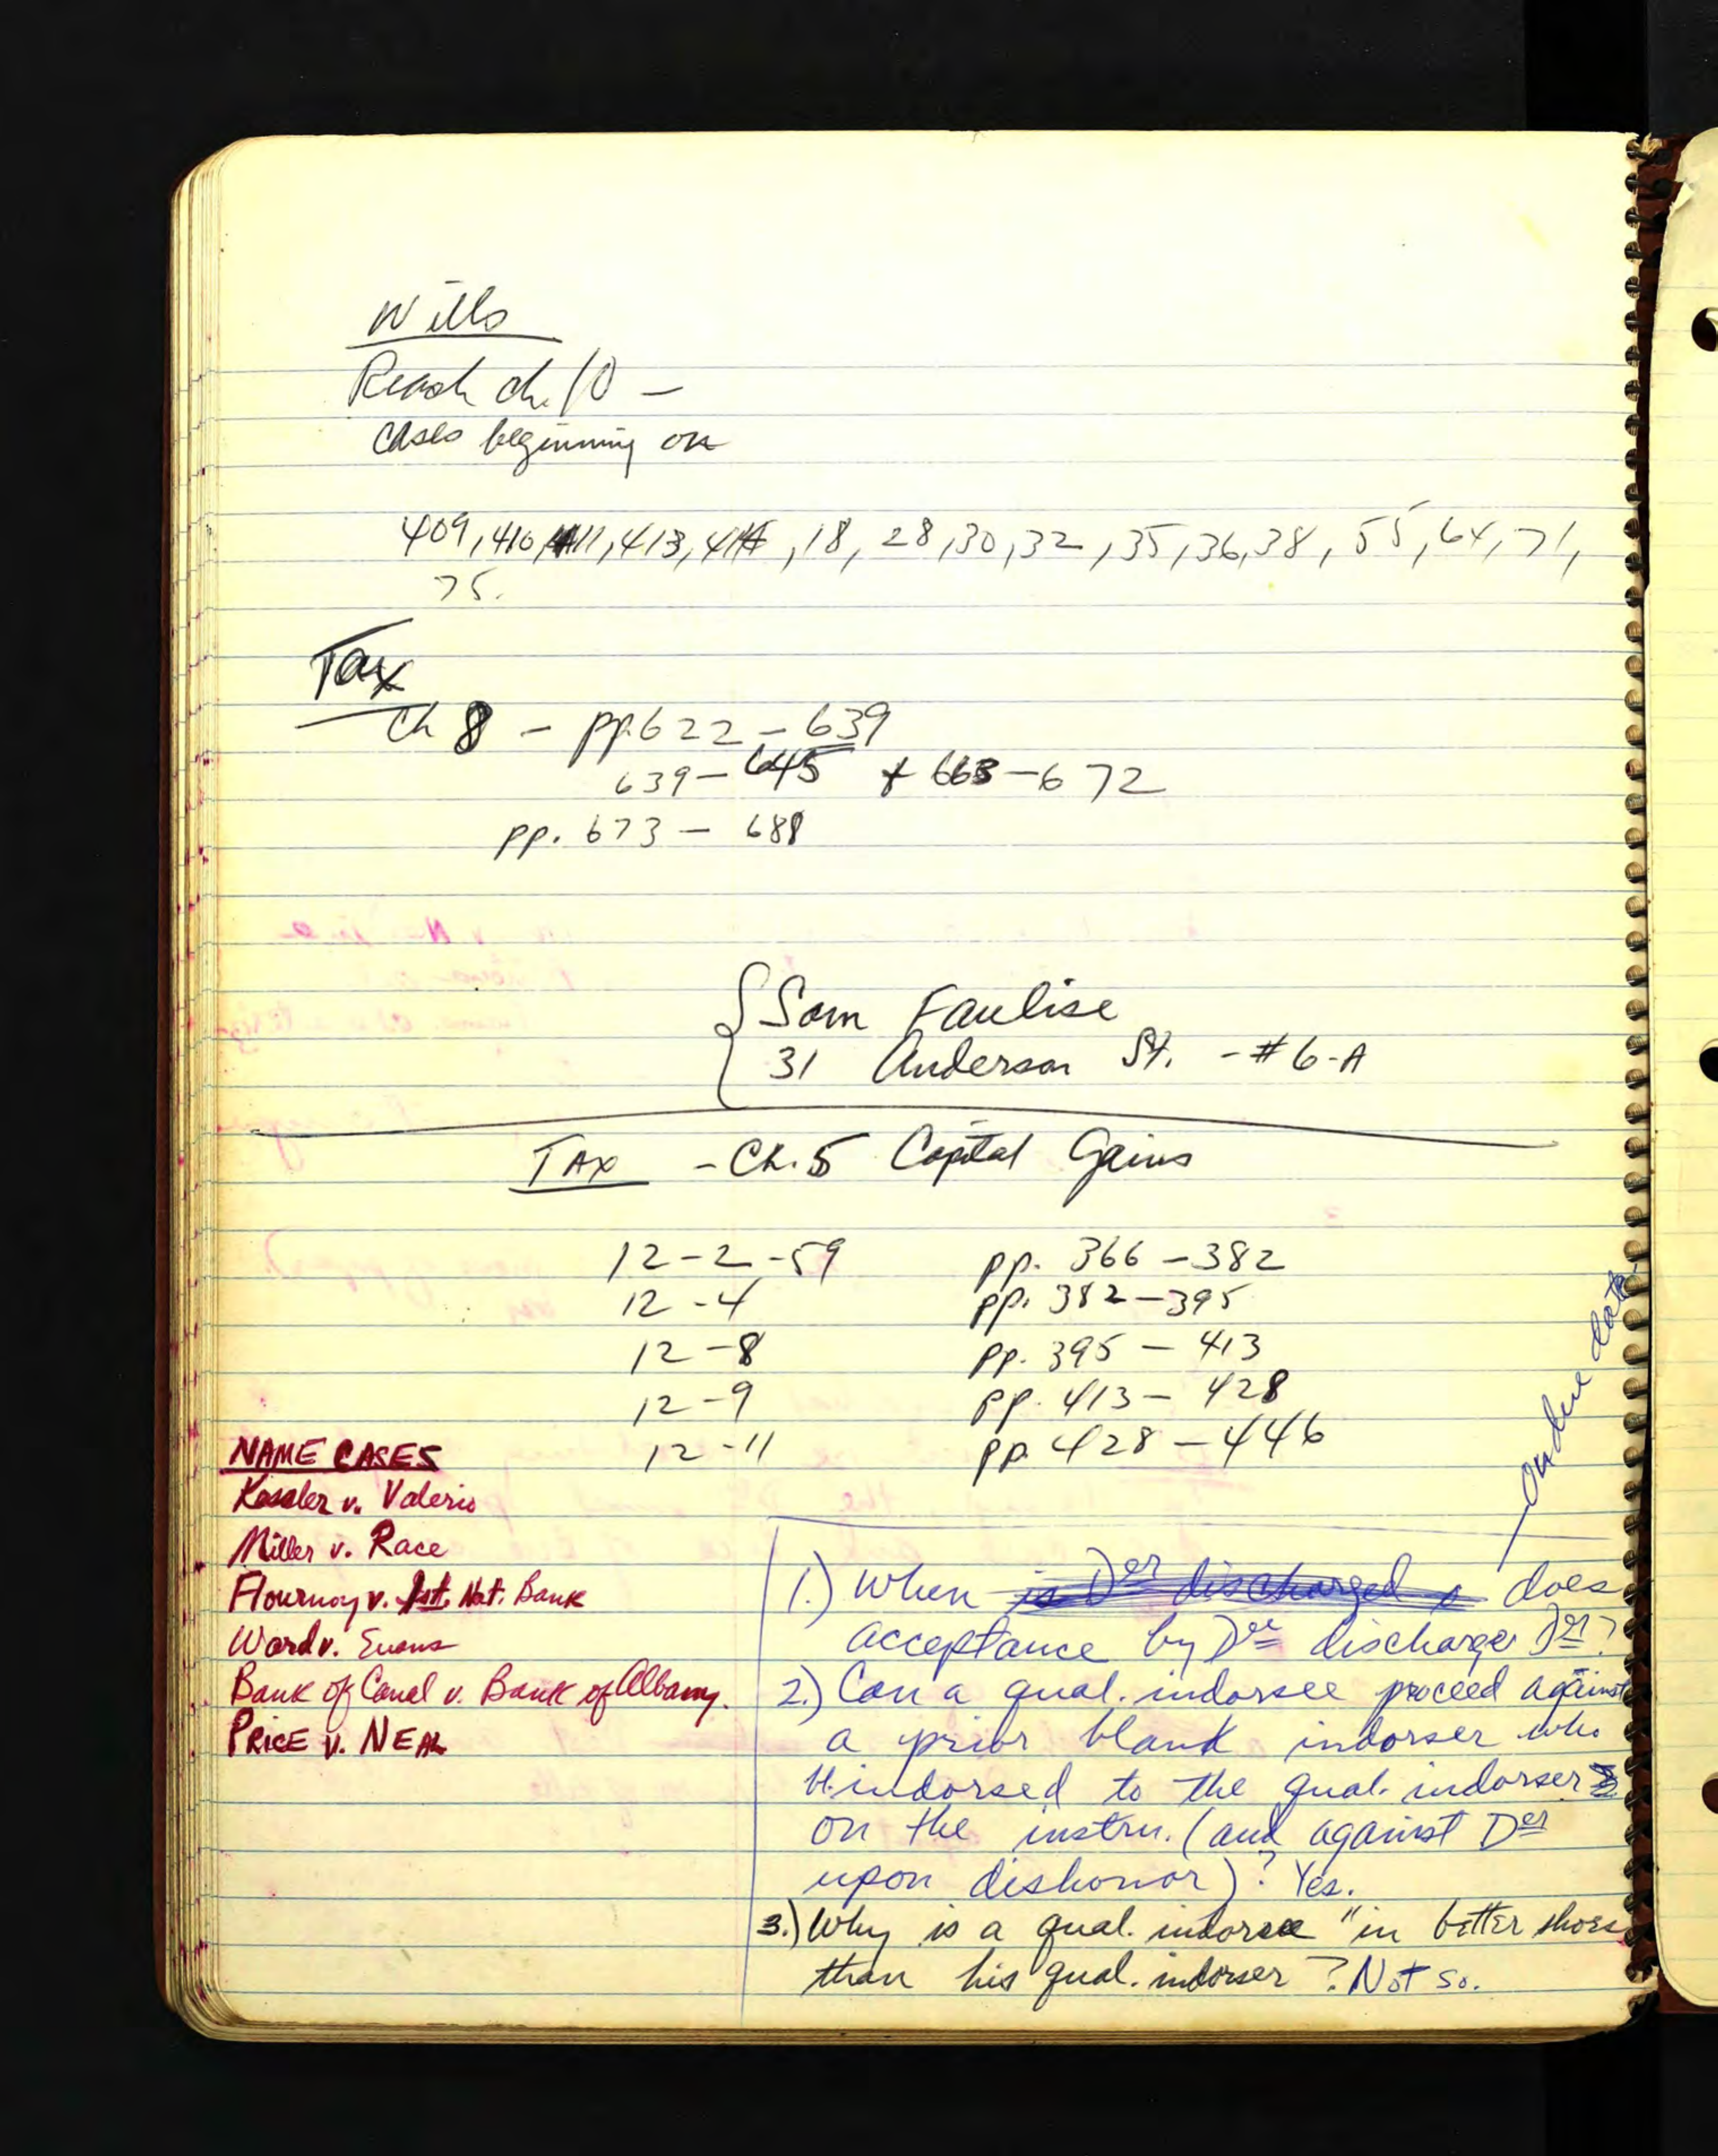 Wills
Reach ch. 10 —
cases beginning on
409, 410, 411, 413, 414, 18, 28, 30, 32, 35, 36, 38, 55, 64, 71,
75.
Tax
Ch 8 - pp. 622 - 639
639 - 645 + 663 - 672
pp. 673 - 688
Sam Faulise
31 Anderson St. - #6-A
TAX - Ch. 5 Capital Gains
12-2-59 pp. 366 - 382
12-4 pp. 382 - 395
12-8 pp. 395 - 413
12-9 pp. 413 - 428
12-11 pp. 428 - 446
NAME CASES
v. Valerio
Miller v. Race
Flournoy v. 1st. Nat. Bank
Ward v. Evans
Bank of Canal v. Bank of Albany.
PRICE v. NEAL
on due date
1.) When is Der discharged does
acceptance by Dee discharge Der?
2.) Can a qual. indorsee proceed against
a prior blank indorser who
indorsed to the qual. indorser
on the instru. (and against Der
upon dishonor)? Yes.
3.) Why is a qual. indorsee "in better shoes
than his qual. indorser? Not so.